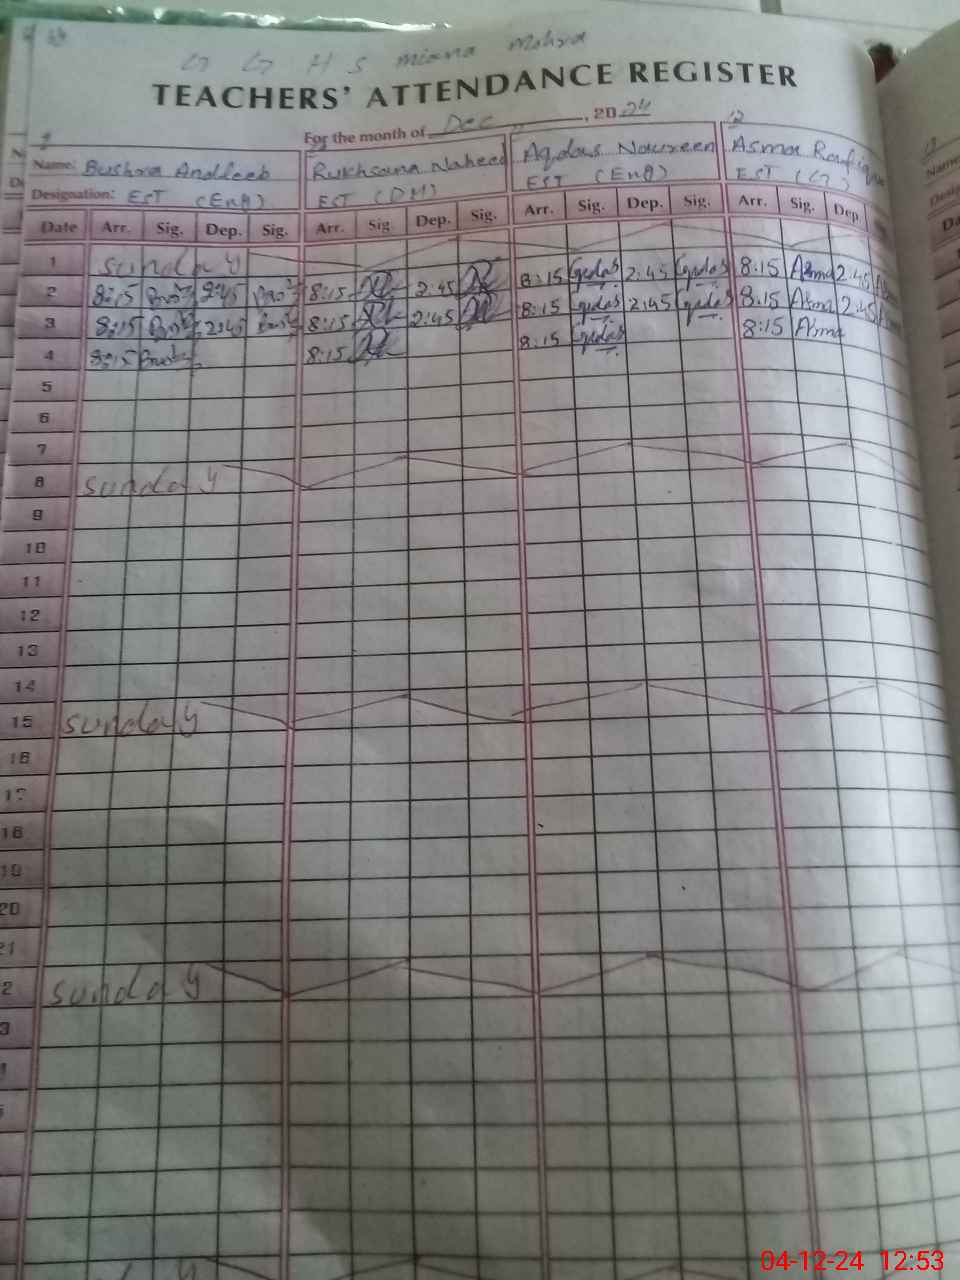 G G H S miana mohra
TEACHERS' ATTENDANCE REGISTER
For the month of Dec, 2024
9 12
Name: Bushra Andleeb Rukhsana Naheed Aqdas Nawreen Asma Rafique
Designation: EST (Eng) EST (DM) EST (Eng) EST (G)
Date Arr. Sig. Dep. Sig. Arr. Sig. Dep. Sig. Arr. Sig. Dep. Sig. Arr. Sig. Dep.
1 sunday
2 8:15 2:45 8:15 2:45 8:15 2:45 8:15 Asma 2:45
3 8:15 2:45 8:15 2:45 8:15 2:45 8:15 Asma 2:45
4 8:15 8:15 8:15 8:15 Asma
5
6
7
8 sunday
9
10
11
12
13
14
15 sunday
16
17
18
19
20
21
2 sunday
3
04-12-24 12:53